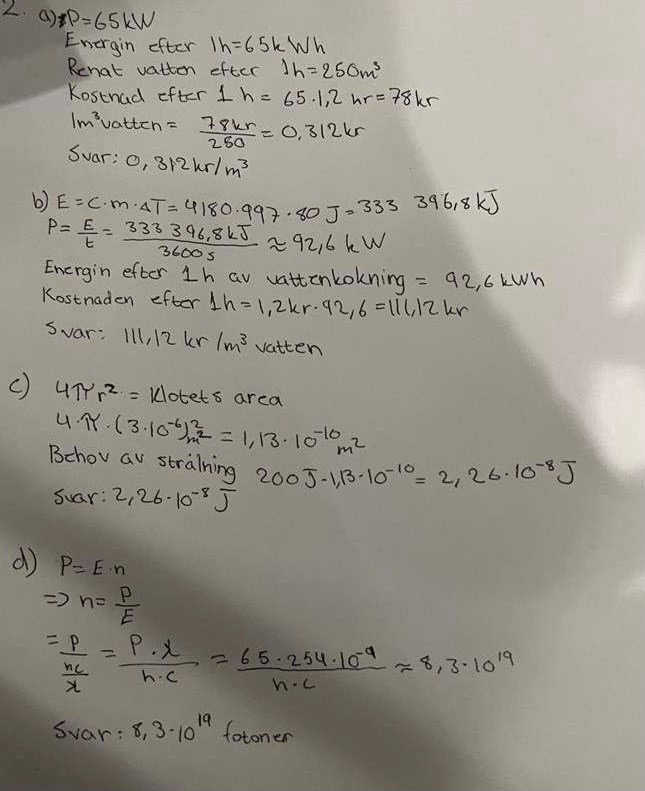 2. a) P=65kW
Energin efter 1h=65kWh
Renat vatten efter 1h=250m³
Kostnad efter 1 h = 65·1,2 kr=78kr
1m³vatten = 78kr/250 = 0,312kr
Svar: 0,312kr/m³
b) E=c·m·ΔT=4180·997·80 J=333 396,8kJ
P= E/t = 333 396,8kJ/3600s ≈ 92,6 kW
Energin efter 1h av vattenkokning = 92,6 kWh
Kostnaden efter 1h=1,2kr·92,6=111,12 kr
Svar: 111,12 kr/m³ vatten
c) 4πr² = Klotets area
4·π·(3·10⁻⁶)²m² = 1,13·10⁻¹⁰m²
Behov av strålning 200J·1,13·10⁻¹⁰= 2,26·10⁻⁸J
Svar: 2,26·10⁻⁸J
d) P=E·n
=> n= P/E
= P/(hc/λ) = P·λ/h·c = 65·254·10⁻⁹/h·c ≈ 8,3·10¹⁹
Svar: 8,3·10¹⁹ fotoner